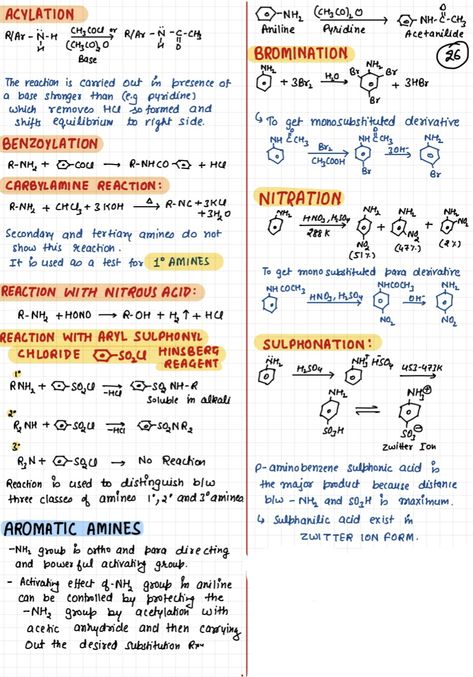 ACYLATION
R/Ar - N - H CH3COCl or (CH3CO)2O Base R/Ar - N - C - CH3
H H O
The reaction is carried out in presence of
a base stronger than (eg pyridine)
which removes HCl so formed and
shifts equilibrium to right side.
BENZOYLATION
R-NH2 + COCl → R-NHCO + HCl
CARBYLAMINE REACTION:
R-NH2 + CHCl3 + 3KOH Δ→ R-NC + 3KCl
+3H2O
Secondary and tertiary amines do not
show this reaction.
It is used as a test for 1° AMINES
REACTION WITH NITROUS ACID:
R-NH2 + HONO → R-OH + N2↑ + HCl
REACTION WITH ARYL SULPHONYL
CHLORIDE SO2Cl HINSBERG
REAGENT
1°
RNH2 + SO2Cl -HCl→ SO2 NH-R
Soluble in alkali
2°
R2NH + SO2Cl -HCl→ SO2NR2
3°
R3N + SO2Cl → No Reaction
Reaction is used to distinguish b/w
three classes of amines 1°, 2° and 3° amines
AROMATIC AMINES
-NH2 group is ortho and para directing
and powerful activating group.
- Activating effect of -NH2 group in aniline
can be controlled by protecting the
-NH2 group by acetylation with
acetic anhydride and then carrying
Out the desired substitution
NH2 (CH3CO)2O Pyridine NH-C-CH3
O
Aniline Acetanilide
BROMINATION 26
NH2 + 3Br2 H2O→ NH2 Br Br Br + 3HBr
↳ To get monosubstituted derivative
NHCCH3 Br2 CH3COOH NHCCH3 OH- NH2
O O
Br Br
NITRATION
NH2 HNO3, H2SO4 288K NH2 + NH2 + NH2
NO2 NO2 NO2
(51%) (47%) (2%)
To get monosubstituted para derivative
NHCOCH3 HNO3, H2SO4 NHCOCH3 OH- NH2
NO2 NO2
SULPHONATION:
NH2 H2SO4 NH3 HSO4 453-473K
NH2 ⇌ NH3
SO3H SO3
Zwitter Ion
p-aminobenzene sulphonic acid is
the major product because distance
b/w -NH2 and SO3H is maximum.
↳ Sulphanilic acid exist in
ZWITTER ION FORM.